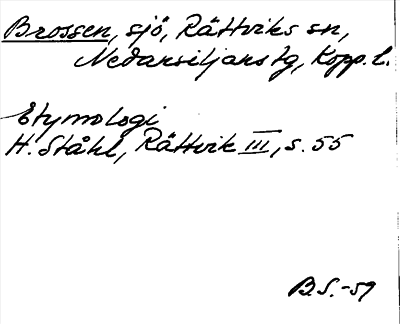 Brossen, sjö, Rättviks sn,
Nedansiljans tg, Kopp. l.
Etymologi
H. Ståhl, Rättvik III, s. 55
B.S.-59